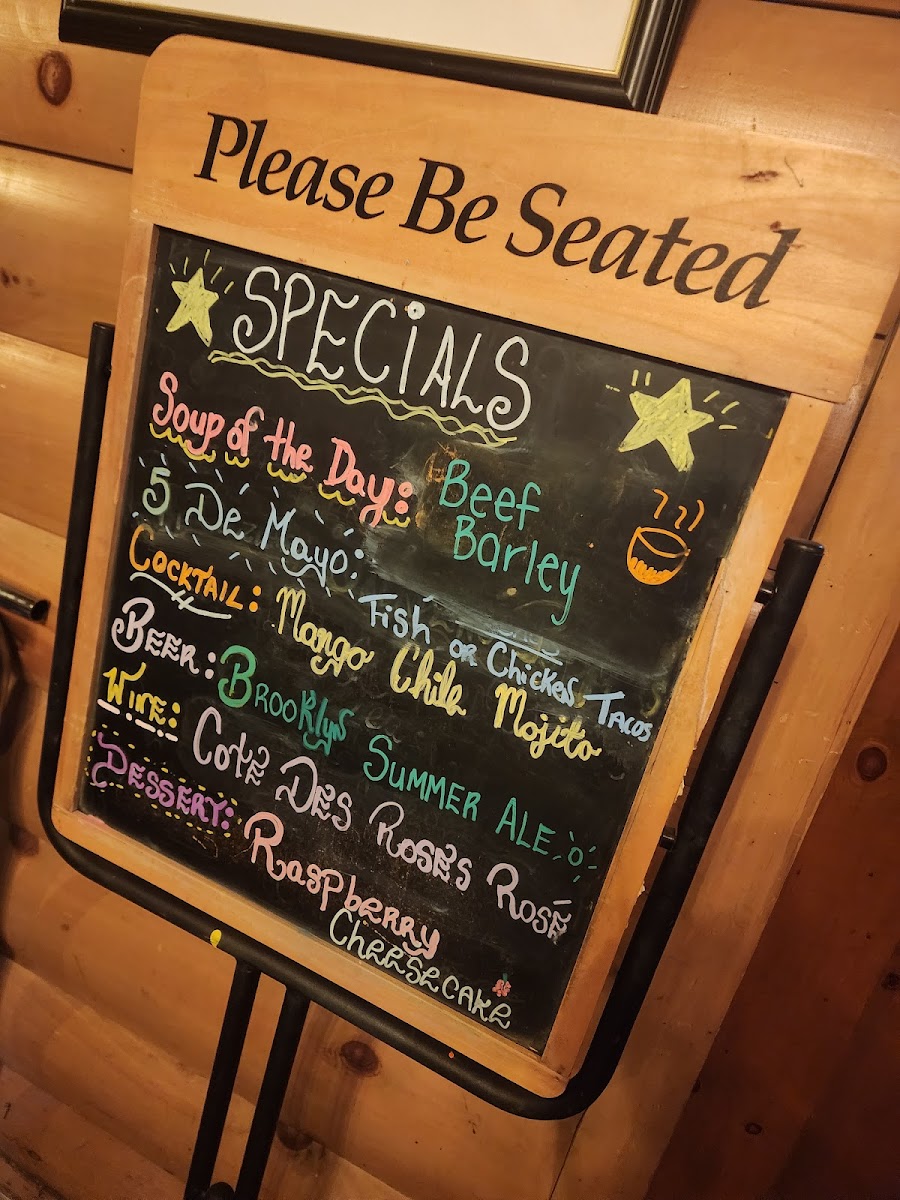 Please Be Seated
SPECIALS
Soup of the Day: Beef
Barley
5 De Mayo:
Fish or Chicken Tacos
Cocktail: Mango Chile Mojito
Beer: Brooklyn Summer Ale
Wine: Cote Des Roses Rosé
Dessert: Raspberry
Cheesecake